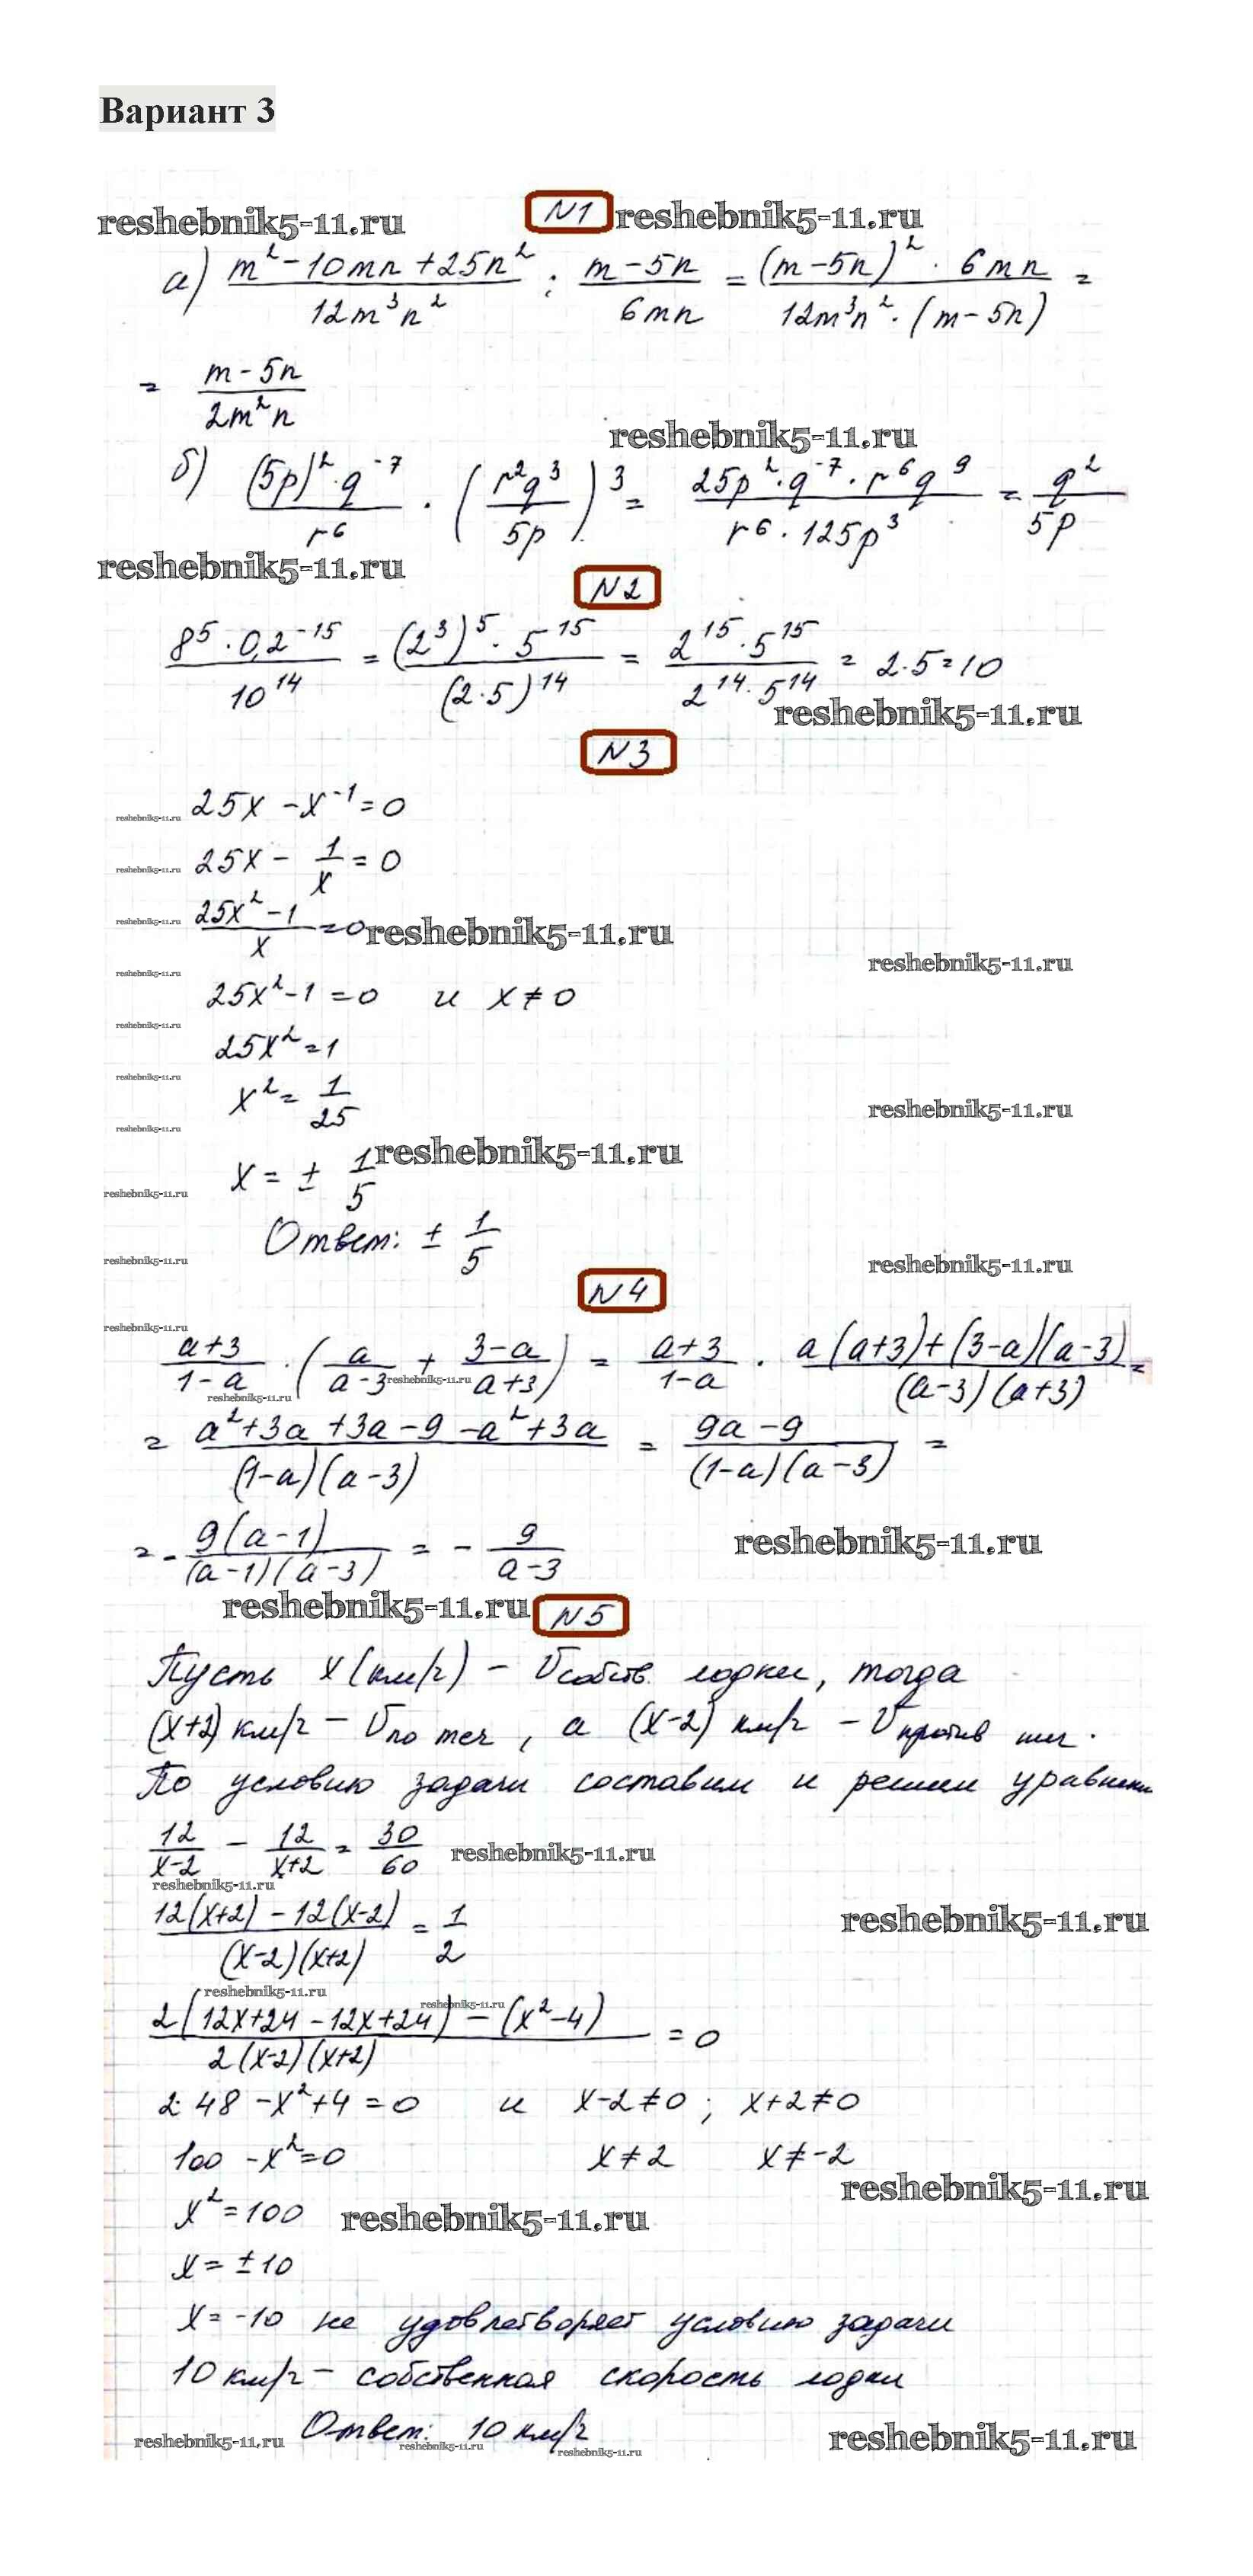 Вариант 3
reshebnik5-11.ru N1 reshebnik5-11.ru
а) (m² - 10mn + 25n²)/(12m³n²) : (m - 5n)/(6mn) = ((m - 5n)² · 6mn)/(12m³n² · (m - 5n)) =
= (m - 5n)/(2m²n)
reshebnik5-11.ru
б) ((5p)² · q⁻⁷)/r⁶ · (r²q³/5p)³ = (25p² · q⁻⁷ · r⁶q⁹)/(r⁶ · 125p³) = q²/5p
reshebnik5-11.ru
N2
(8⁵ · 0,2⁻¹⁵)/10¹⁴ = ((2³)⁵ · 5¹⁵)/(2·5)¹⁴ = (2¹⁵ · 5¹⁵)/(2¹⁴ · 5¹⁴) = 2·5 = 10
reshebnik5-11.ru
N3
reshebnik5-11.ru 25x - x⁻¹ = 0
reshebnik5-11.ru 25x - 1/x = 0
reshebnik5-11.ru (25x² - 1)/x = 0 reshebnik5-11.ru
reshebnik5-11.ru
reshebnik5-11.ru
25x² - 1 = 0 и x ≠ 0
reshebnik5-11.ru
25x² = 1
reshebnik5-11.ru
x² = 1/25
reshebnik5-11.ru
reshebnik5-11.ru
x = ± 1/5 reshebnik5-11.ru
reshebnik5-11.ru
Ответ: ± 1/5
reshebnik5-11.ru reshebnik5-11.ru
N4
reshebnik5-11.ru
(a+3)/(1-a) · (a/(a-3) + (3-a)/(a+3)) = (a+3)/(1-a) · (a(a+3)+(3-a)(a-3))/((a-3)(a+3)) =
reshebnik5-11.ru
reshebnik5-11.ru
= (a²+3a+3a-9-a²+3a)/((1-a)(a-3)) = (9a-9)/((1-a)(a-3)) =
= - 9(a-1)/((a-1)(a-3)) = - 9/(a-3) reshebnik5-11.ru
reshebnik5-11.ru N5
Пусть x (км/ч) - Vсобств. лодки, тогда
(x+2) км/ч - Vпо теч, а (x-2) км/ч - Vпротив теч.
По условию задачи составим и решим уравнени
12/(x-2) - 12/(x+2) = 30/60 reshebnik5-11.ru
reshebnik5-11.ru
(12(x+2) - 12(x-2))/((x-2)(x+2)) = 1/2 reshebnik5-11.ru
reshebnik5-11.ru
reshebnik5-11.ru
(2(12x+24-12x+24) - (x²-4))/(2(x-2)(x+2)) = 0
2·48 - x² + 4 = 0 и x-2≠0; x+2≠0
100 - x² = 0 x≠2 x≠-2
reshebnik5-11.ru
x² = 100 reshebnik5-11.ru
x = ±10
x = -10 не удовлетворяет условию задачи
10 км/ч - собственная скорость лодки
reshebnik5-11.ru Ответ: 10 км/ч reshebnik5-11.ru
reshebnik5-11.ru
reshebnik5-11.ru